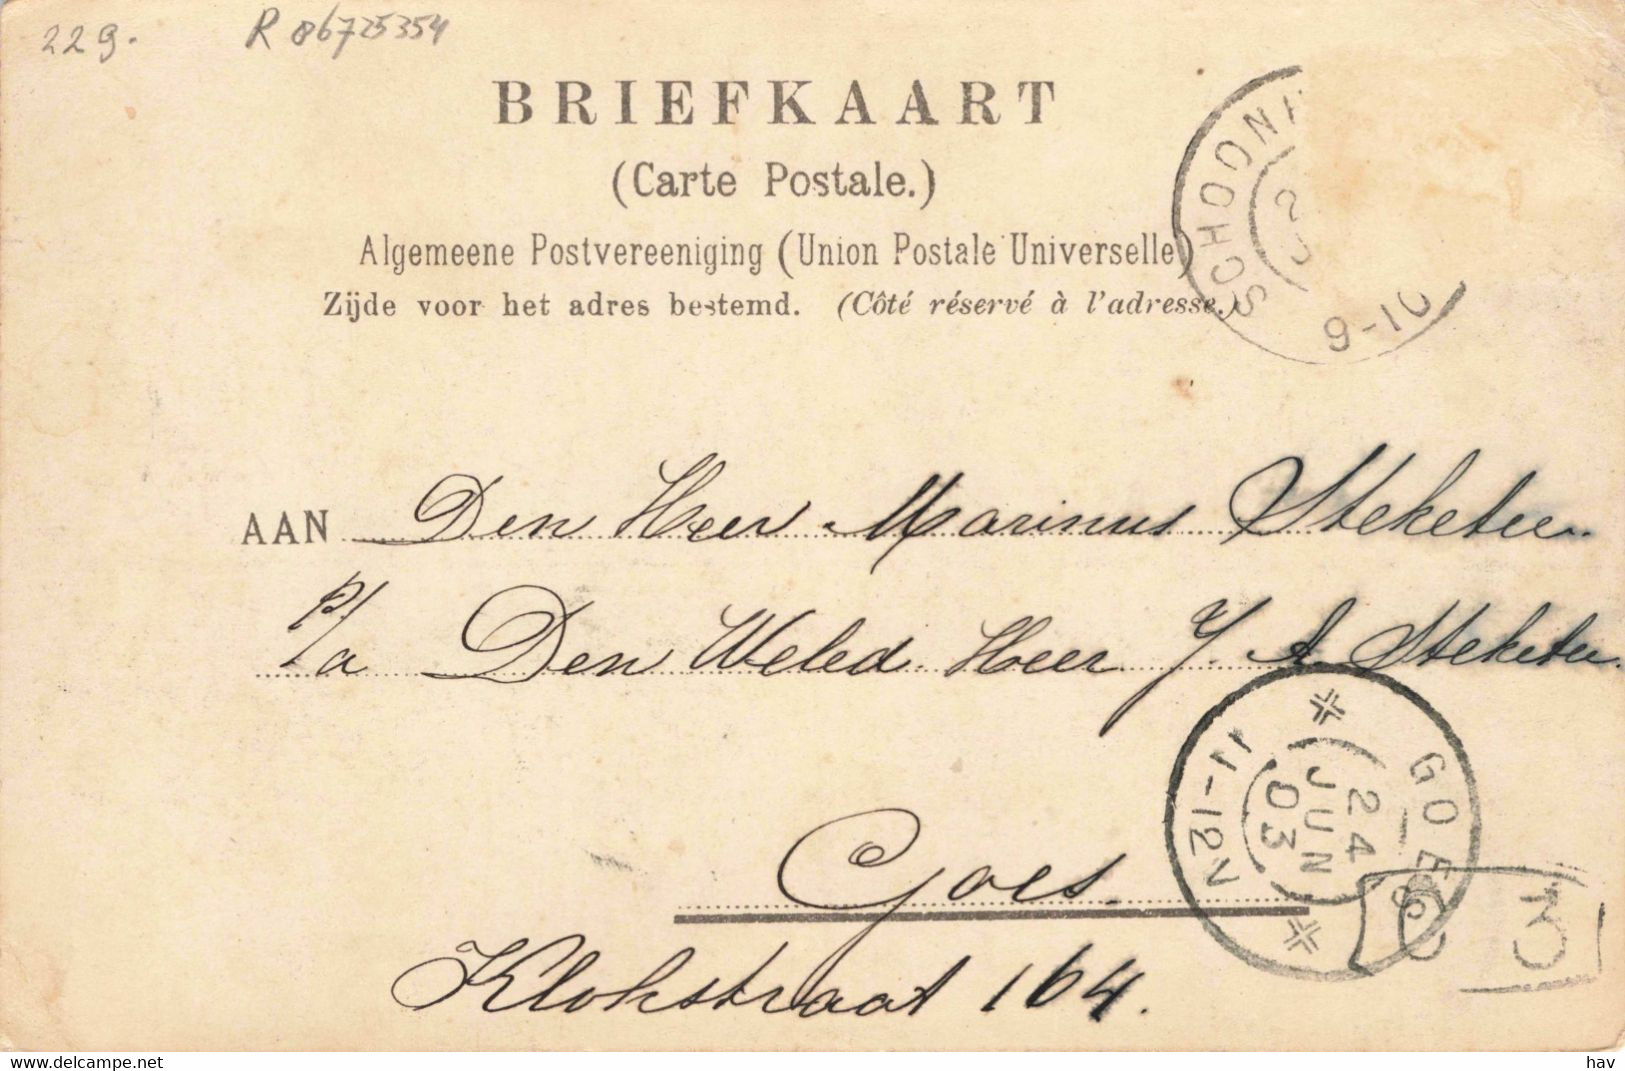 229. R 86725354
BRIEFKAART
(Carte Postale.)
Algemeene Postvereeniging (Union Postale Universelle)
Zijde voor het adres bestemd. (Côté réservé à l'adresse.)
SCHOON
9-10
AAN Den Heer Marinus Steketee.
P/a Den Weled. Heer J. A. Steketee.
GOES
24 JUN 03
11-12V
Goes.
Klokstraat 164.
delcampe.net
hav